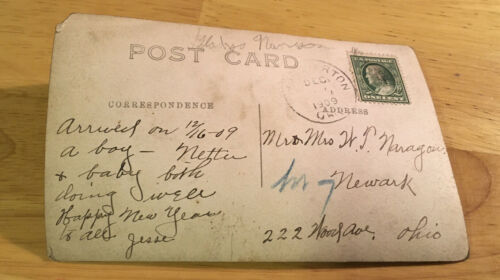 POST CARD
ERTON
DEC
1909
U.S. POSTAGE
ONE CENT
CORRESPONDENCE
ADDRESS
Arrived on 12/6-09
a boy - Nettie
& baby both
doing well
Happy New Year
to all Jesse
Mr & Mrs W.T. Naragon
Newark
222 Wood Ave. Ohio